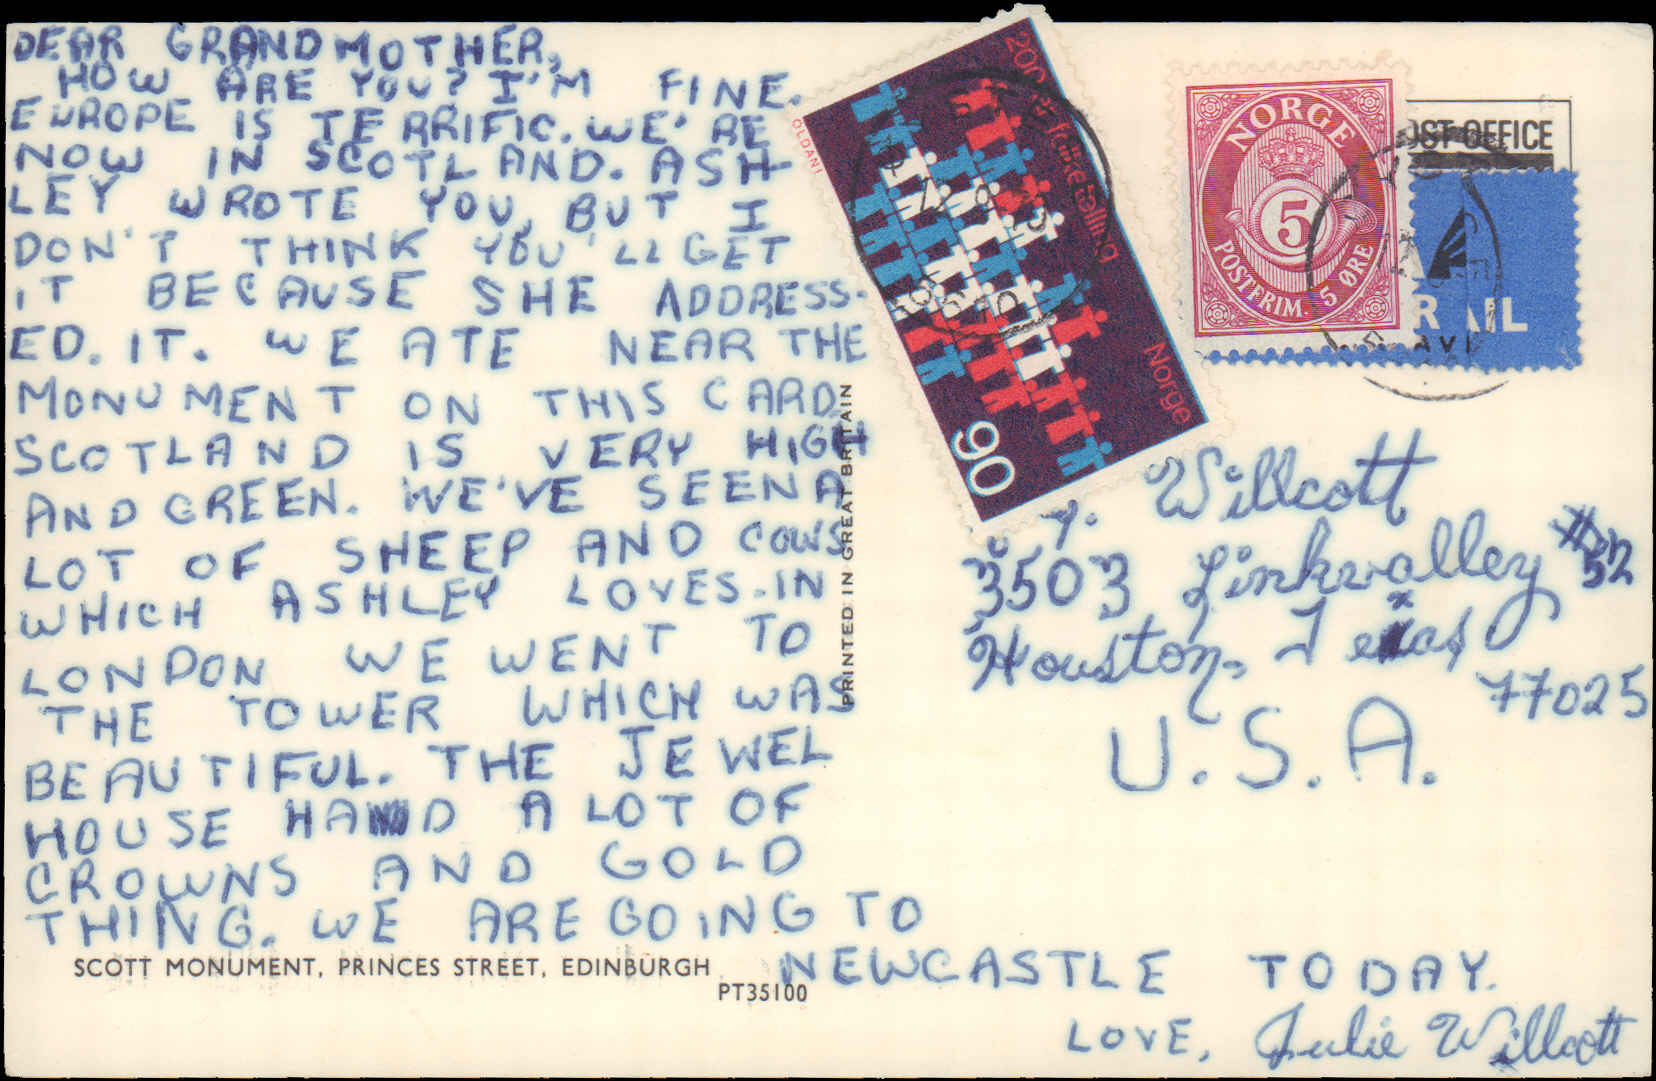 DEAR GRANDMOTHER,
HOW ARE YOU? I'M FINE.
EUROPE IS TERRIFIC. WE'RE
NOW IN SCOTLAND. ASH-
LEY WROTE YOU, BUT I
DON'T THINK YOU'LL GET
IT BECAUSE SHE ADDRESS-
ED. IT. WE ATE NEAR THE
MONUMENT ON THIS CARD.
SCOTLAND IS VERY HIGH
AND GREEN. WE'VE SEEN A
LOT OF SHEEP AND COWS
WHICH ASHLEY LOVES. IN
LONDON WE WENT TO
THE TOWER WHICH WAS
BEAUTIFUL. THE JEWEL
HOUSE HAD A LOT OF
CROWNS AND GOLD
THING. WE ARE GOING TO
NEWCASTLE TODAY.
LOVE, Julie Willcott
SCOTT MONUMENT, PRINCES STREET, EDINBURGH
PT35100
PRINTED IN GREAT BRITAIN
OLDANI
folketelling
Norge
90
NORGE
5
POSTFRIM. 5 ØRE
POST OFFICE
R AIL
Willcott
3503 Linkvalley #52
Houston, Texas
77025
U.S.A.